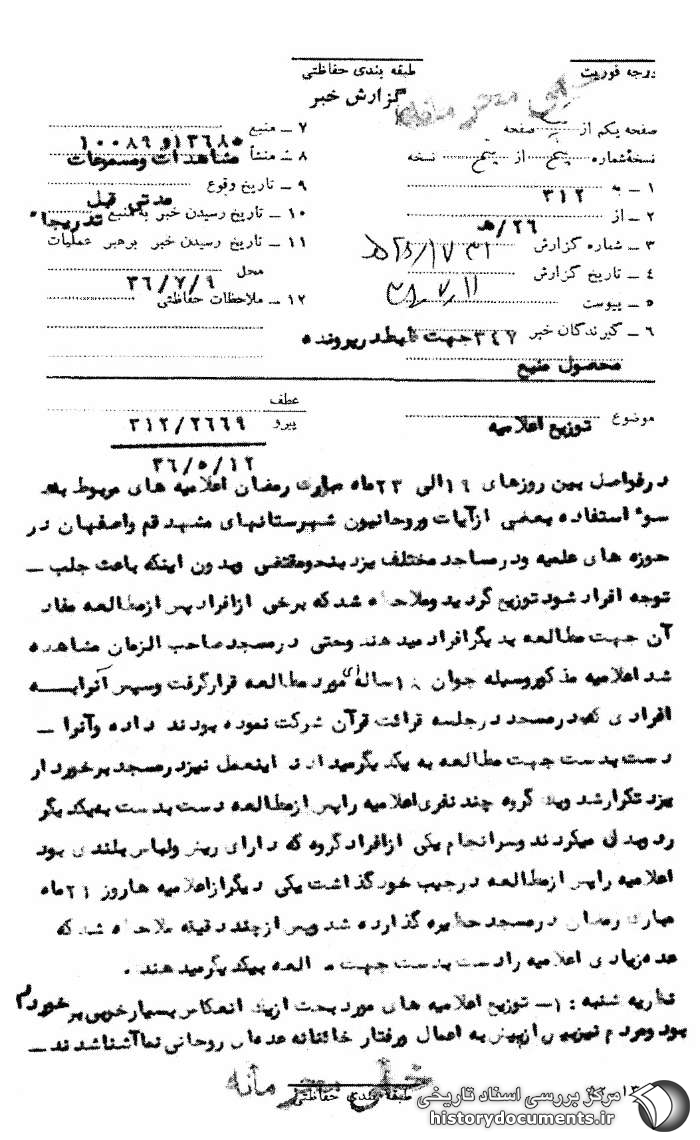 درجه فوریت
طبقه بندی حفاظتی
گزارش خبر
خیلی محرمانه
صفحه یکم از صفحه
نسخهٔ شماره پنجم از پنج نسخه
۱ – به ۳۱۲
۲ – از ۲۶/هـ
۳ – شماره گزارش
۴ – تاریخ گزارش
۵ – پیوست
۶ – گیرندگان خبر ۳۴۷ جهت ضبط در پرونده
محصول منبع
۷ – منبع ۱۳۶۸۵ و ۱۰۰۸۹
۸ – منشأ مشاهدات و مسموعات
۹ – تاریخ وقوع مدتی قبل
۱۰ – تاریخ رسیدن خبر به منبع تدریجا"
۱۱ – تاریخ رسیدن خبر برهبر عملیات
محل ۳۶/۷/۹
۱۲ – ملاحظات حفاظتی
موضوع توزیع اعلامیه
عطف
پیرو ۳۱۲/۲۶۶۹
۳۶/۵/۱۲
در فواصل بین روزهای ۱۹ الی ۲۳ ماه مبارک رمضان اعلامیه های مربوط به
سوء استفاده بعضی از آیات و روحانیون شهرستانهای مشهد قم و اصفهان در
حوزه های علمیه و در مساجد مختلف یزد بنحو مقتضی و بدون اینکه باعث جلب –
توجه افراد شود توزیع گردید و ملاحظه شد که برخی از افراد پس از مطالعه مفاد
آن جهت مطالعه بدیگر افراد میدهند و حتی در مسجد صاحب الزمان مشاهده
شد اعلامیه مذکور وسیله جوان ۱۸ ساله ای مورد مطالعه قرار گرفت و سپس آنرا به
افرادی که در مسجد در جلسه قرائت قرآن شرکت نموده بودند داده و آنرا –
دست بدست جهت مطالعه به یکدیگر میدادند اینعمل نیز در مسجد برخوردار
یزد تکرار شد و یک گروه چند نفری اعلامیه را پس از مطالعه دست بدست به یکدیگر
رد و بدل میکردند و سرانجام یکی از افراد گروه که دارای ریش و لباس بلندی بود
اعلامیه را پس از مطالعه در جیب خود گذاشت یکی دیگر از اعلامیه ها روز ۲۱ ماه
مبارک رمضان در مسجد حظیره گذارده شد و پس از چند دقیقه ملاحظه شد که
عده زیادی اعلامیه را دست بدست جهت مطالعه بیکدیگر میدهند .
نظریه شنبه : ۱– توزیع اعلامیه های مورد بحث از یک انعکاس بسیار خوبی برخوردار
بود و مردم نیز بیش از پیش به اعمال و رفتار خائنانه عده ای روحانی نما آشنا شدند –
خیلی محرمانه
طبقه بندی حفاظتی
مرکز بررسی اسناد تاریخی
historydocuments.ir